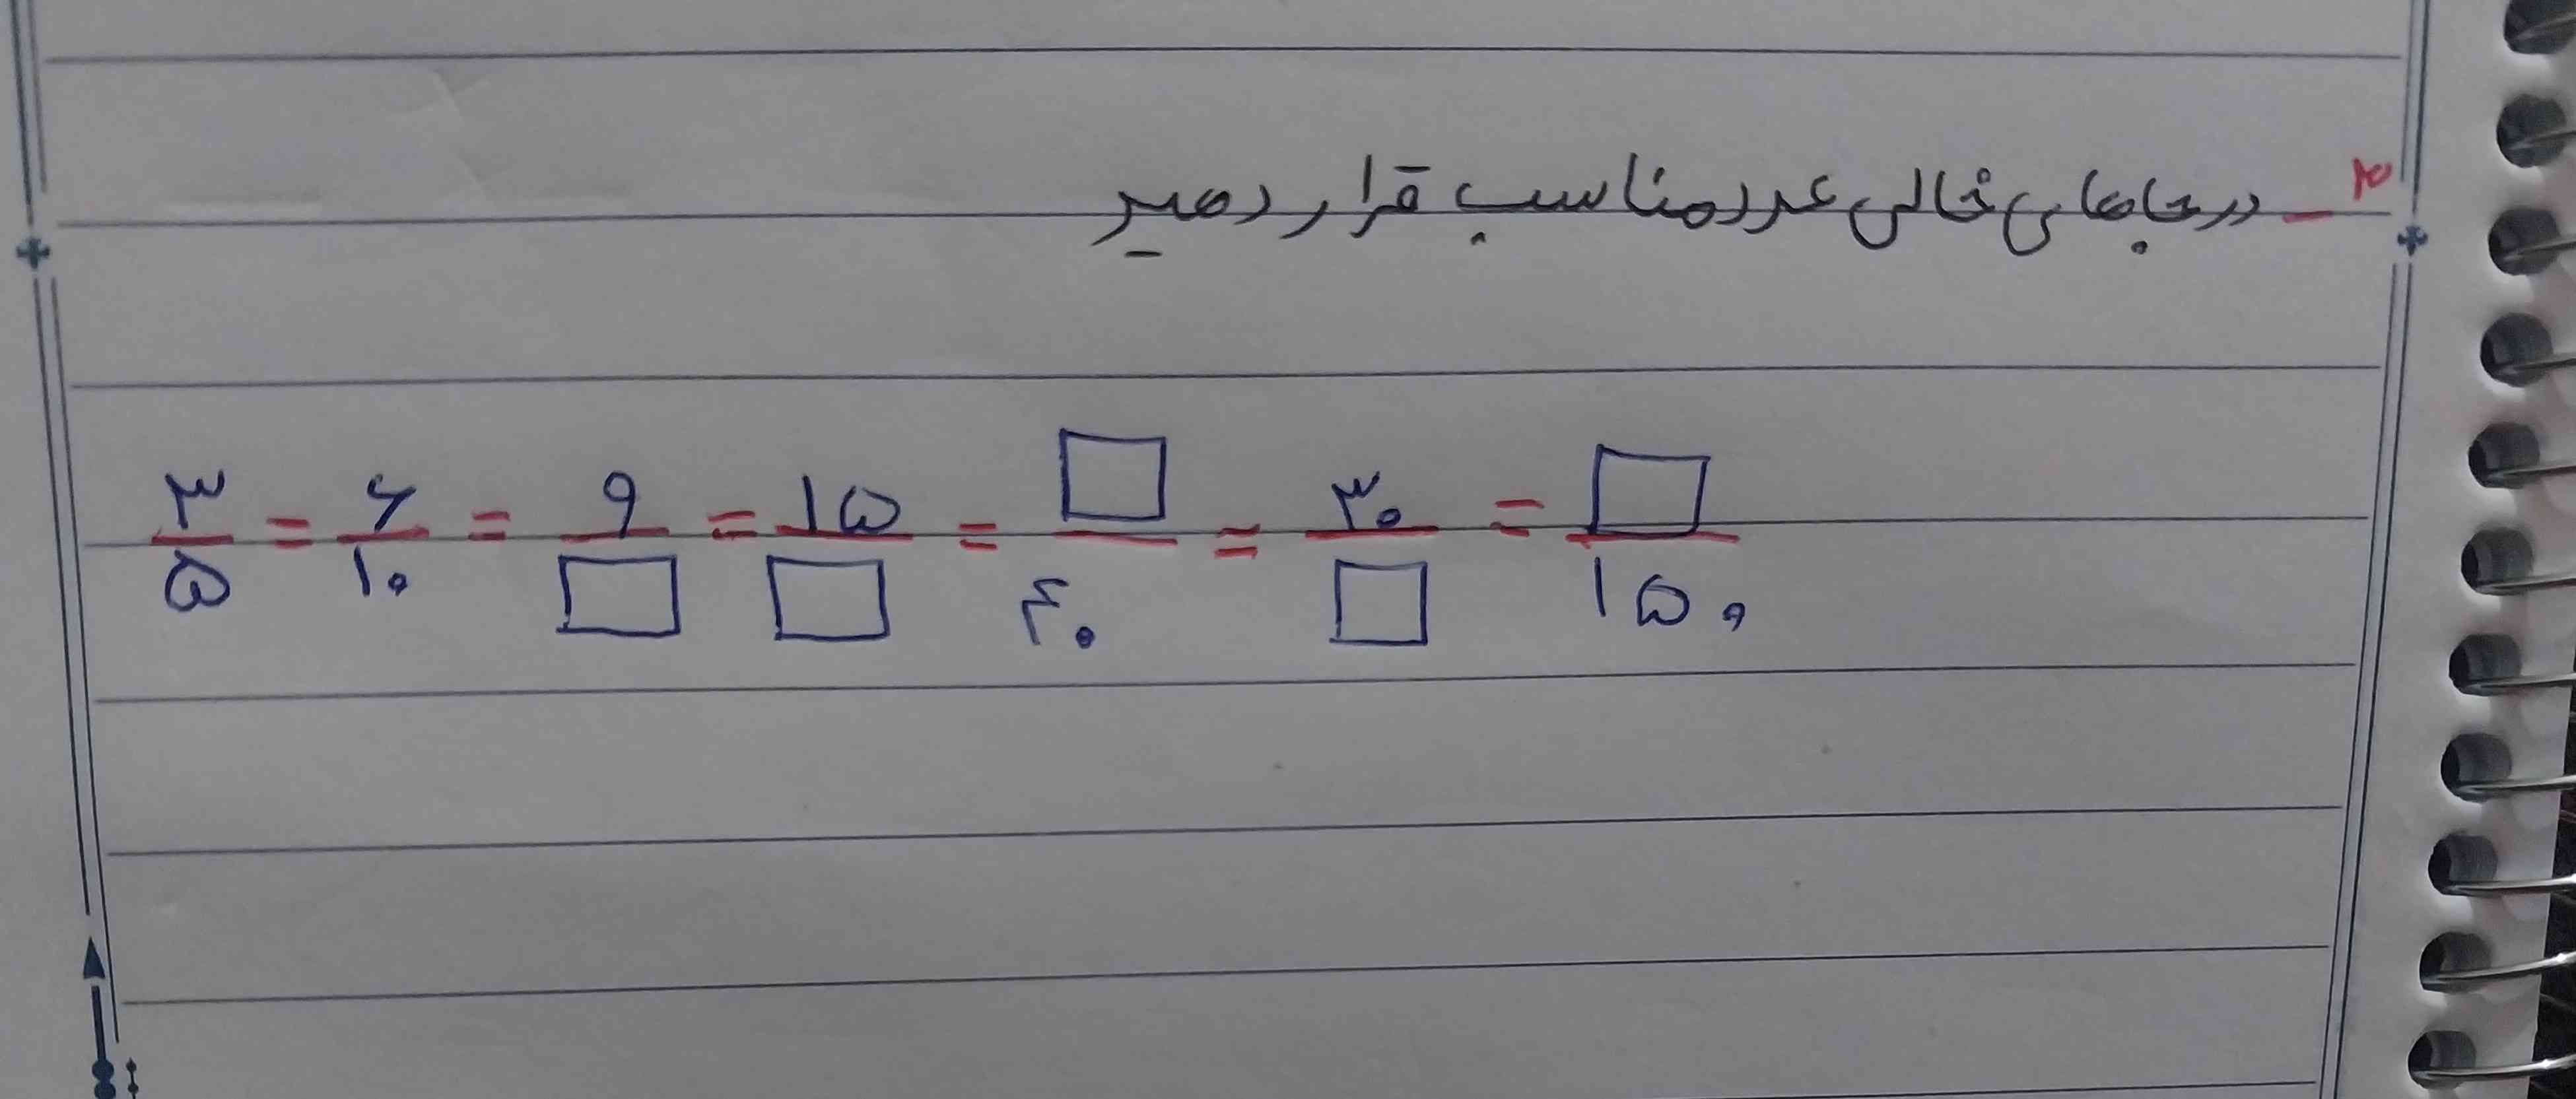 ۳_ در جاهای خالی عدد مناسب قرار دهید
۳/۵ = ۶/۱۰ = ۹/□ = ۱۵/□ = □/۴۰ = ۳۰/□ = □/۱۵۰